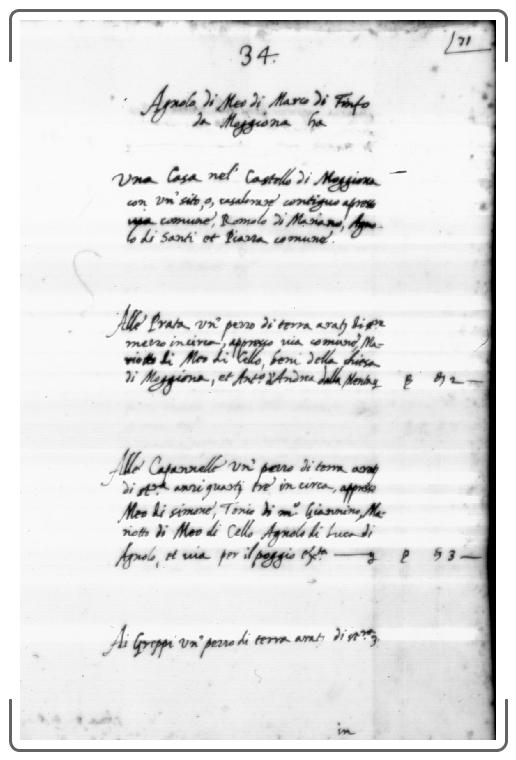 71
34.
Agnolo di Meo di Marco di Finfo
da Moggiona ha
Una Casa nel Castello di Moggiona
con un' sito, o, casalorare contiguo apresso
via comune, Romolo di Mariano, Agno-
lo di Santi et Piazza comune.
Alle Prata un' pezzo di terra di
mezzo incirca, appresso via comune, Ma-
riotto di Meo di Cello, beni della chiesa
di Moggiona, et Ant.o d'Andrea dalla 2
Alle Capannelle un' pezzo di terra
di anzi quarti tre in circa, appresso
Meo di simone, Tonio di m.o Giannino, Ma-
riotto di Meo di Cello Agnolo di Luca di
Agnolo, et via per il poggio 3
Ai Greppi un' pezzo di terra di
in